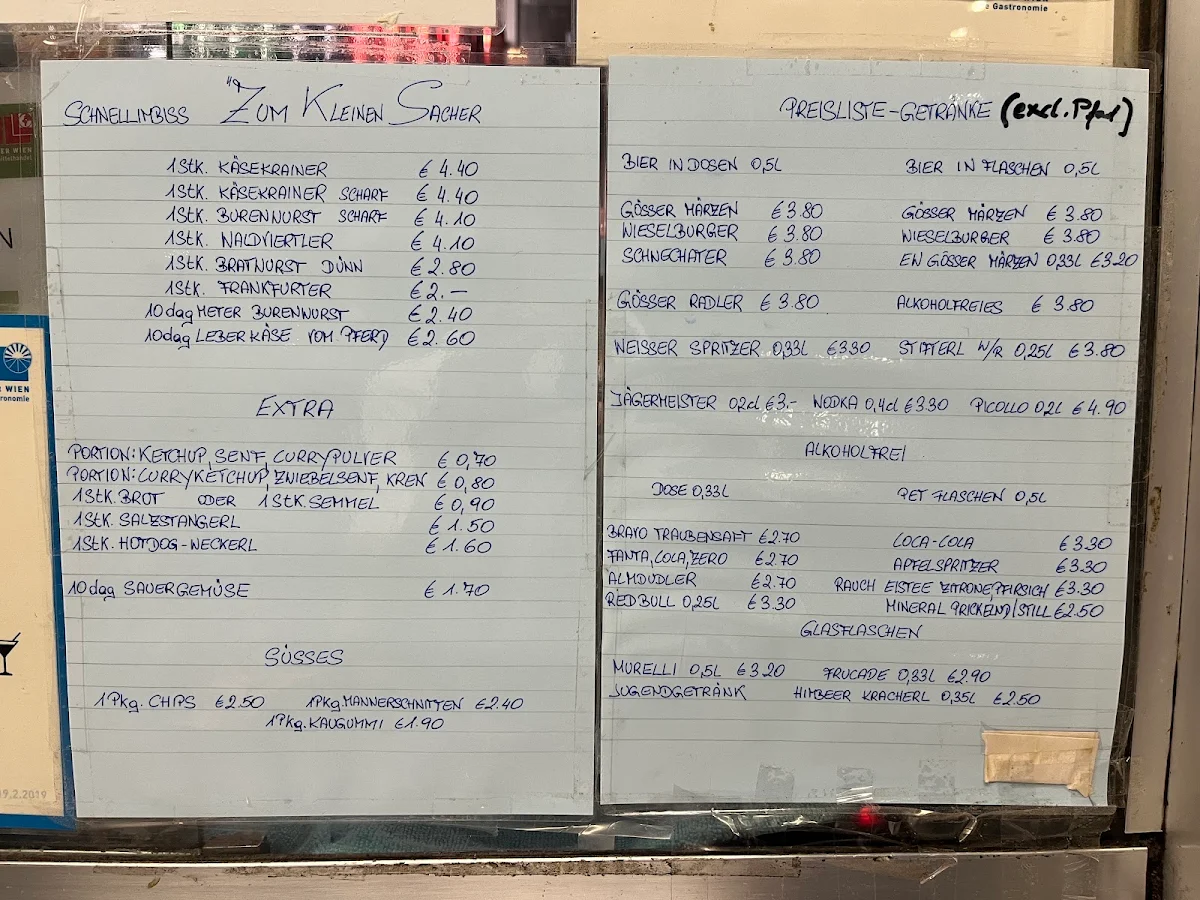 e Gastronomie
SCHNELLIMBISS "ZUM KLEINEN SACHER
1STK. KÄSEKRAINER € 4.40
1STK. KÄSEKRAINER SCHARF € 4.40
1STK. BURENWURST SCHARF € 4.10
1STK. WALDVIERTLER € 4.10
1STK. BRATWURST DÜNN € 2.80
1STK. FRANKFURTER € 2.—
10 dag METER BURENWURST € 2.40
10dag LEBERKÄSE VOM PFERD € 2.60
EXTRA
PORTION: KETCHUP, SENF, CURRYPULVER € 0,70
PORTION: CURRYKETCHUP, ZWIEBELSENF, KREN € 0,80
1STK. BROT ODER 1STK. SEMMEL € 0,90
1STK. SALZSTANGERL € 1.50
1STK. HOTDOG-WECKERL € 1.60
10 dag SAUERGEMÜSE € 1.70
SÜSSES
1Pkg. CHIPS €2.50 1Pkg. MANNERSCHNITTEN €2.40
1Pkg. KAUGUMMI €1.90
PREISLISTE-GETRÄNKE (excl. Pfa)
BIER IN DOSEN 0,5L BIER IN FLASCHEN 0,5L
GÖSSER MÄRZEN €3.80 GÖSSER MÄRZEN €3.80
WIESELBURGER €3.80 WIESELBURGER €3.80
SCHWECHATER €3.80 EN GÖSSER MÄRZEN 0,33L €3.20
GÖSSER RADLER €3.80 ALKOHOLFREIES €3.80
WEISSER SPRITZER 0,33L €3.30 STIFTERL W/R 0,25L €3.80
JÄGERMEISTER 02cl €3.- WODKA 0,4cl €3.30 PICOLLO 0,2L €4.90
ALKOHOLFREI
DOSE 0,33L PET FLASCHEN 0,5L
BRAVO TRAUBENSAFT €2.70 COCA-COLA €3.30
FANTA, COLA, ZERO €2.70 APFELSPRITZER €3.30
ALMDUDLER €2.70 RAUCH EISTEE ZITRONE, PFIRSICH €3.30
RED BULL 0,25L €3.30 MINERAL PRICKELND/STILL €2.50
GLASFLASCHEN
MURELLI 0,5L €3.20 FRUCADE 0,33L €2.90
JUGENDGETRÄNK HIMBEER KRACHERL 0,35L €2.50
R WIEN
ronomie
19.2.2019